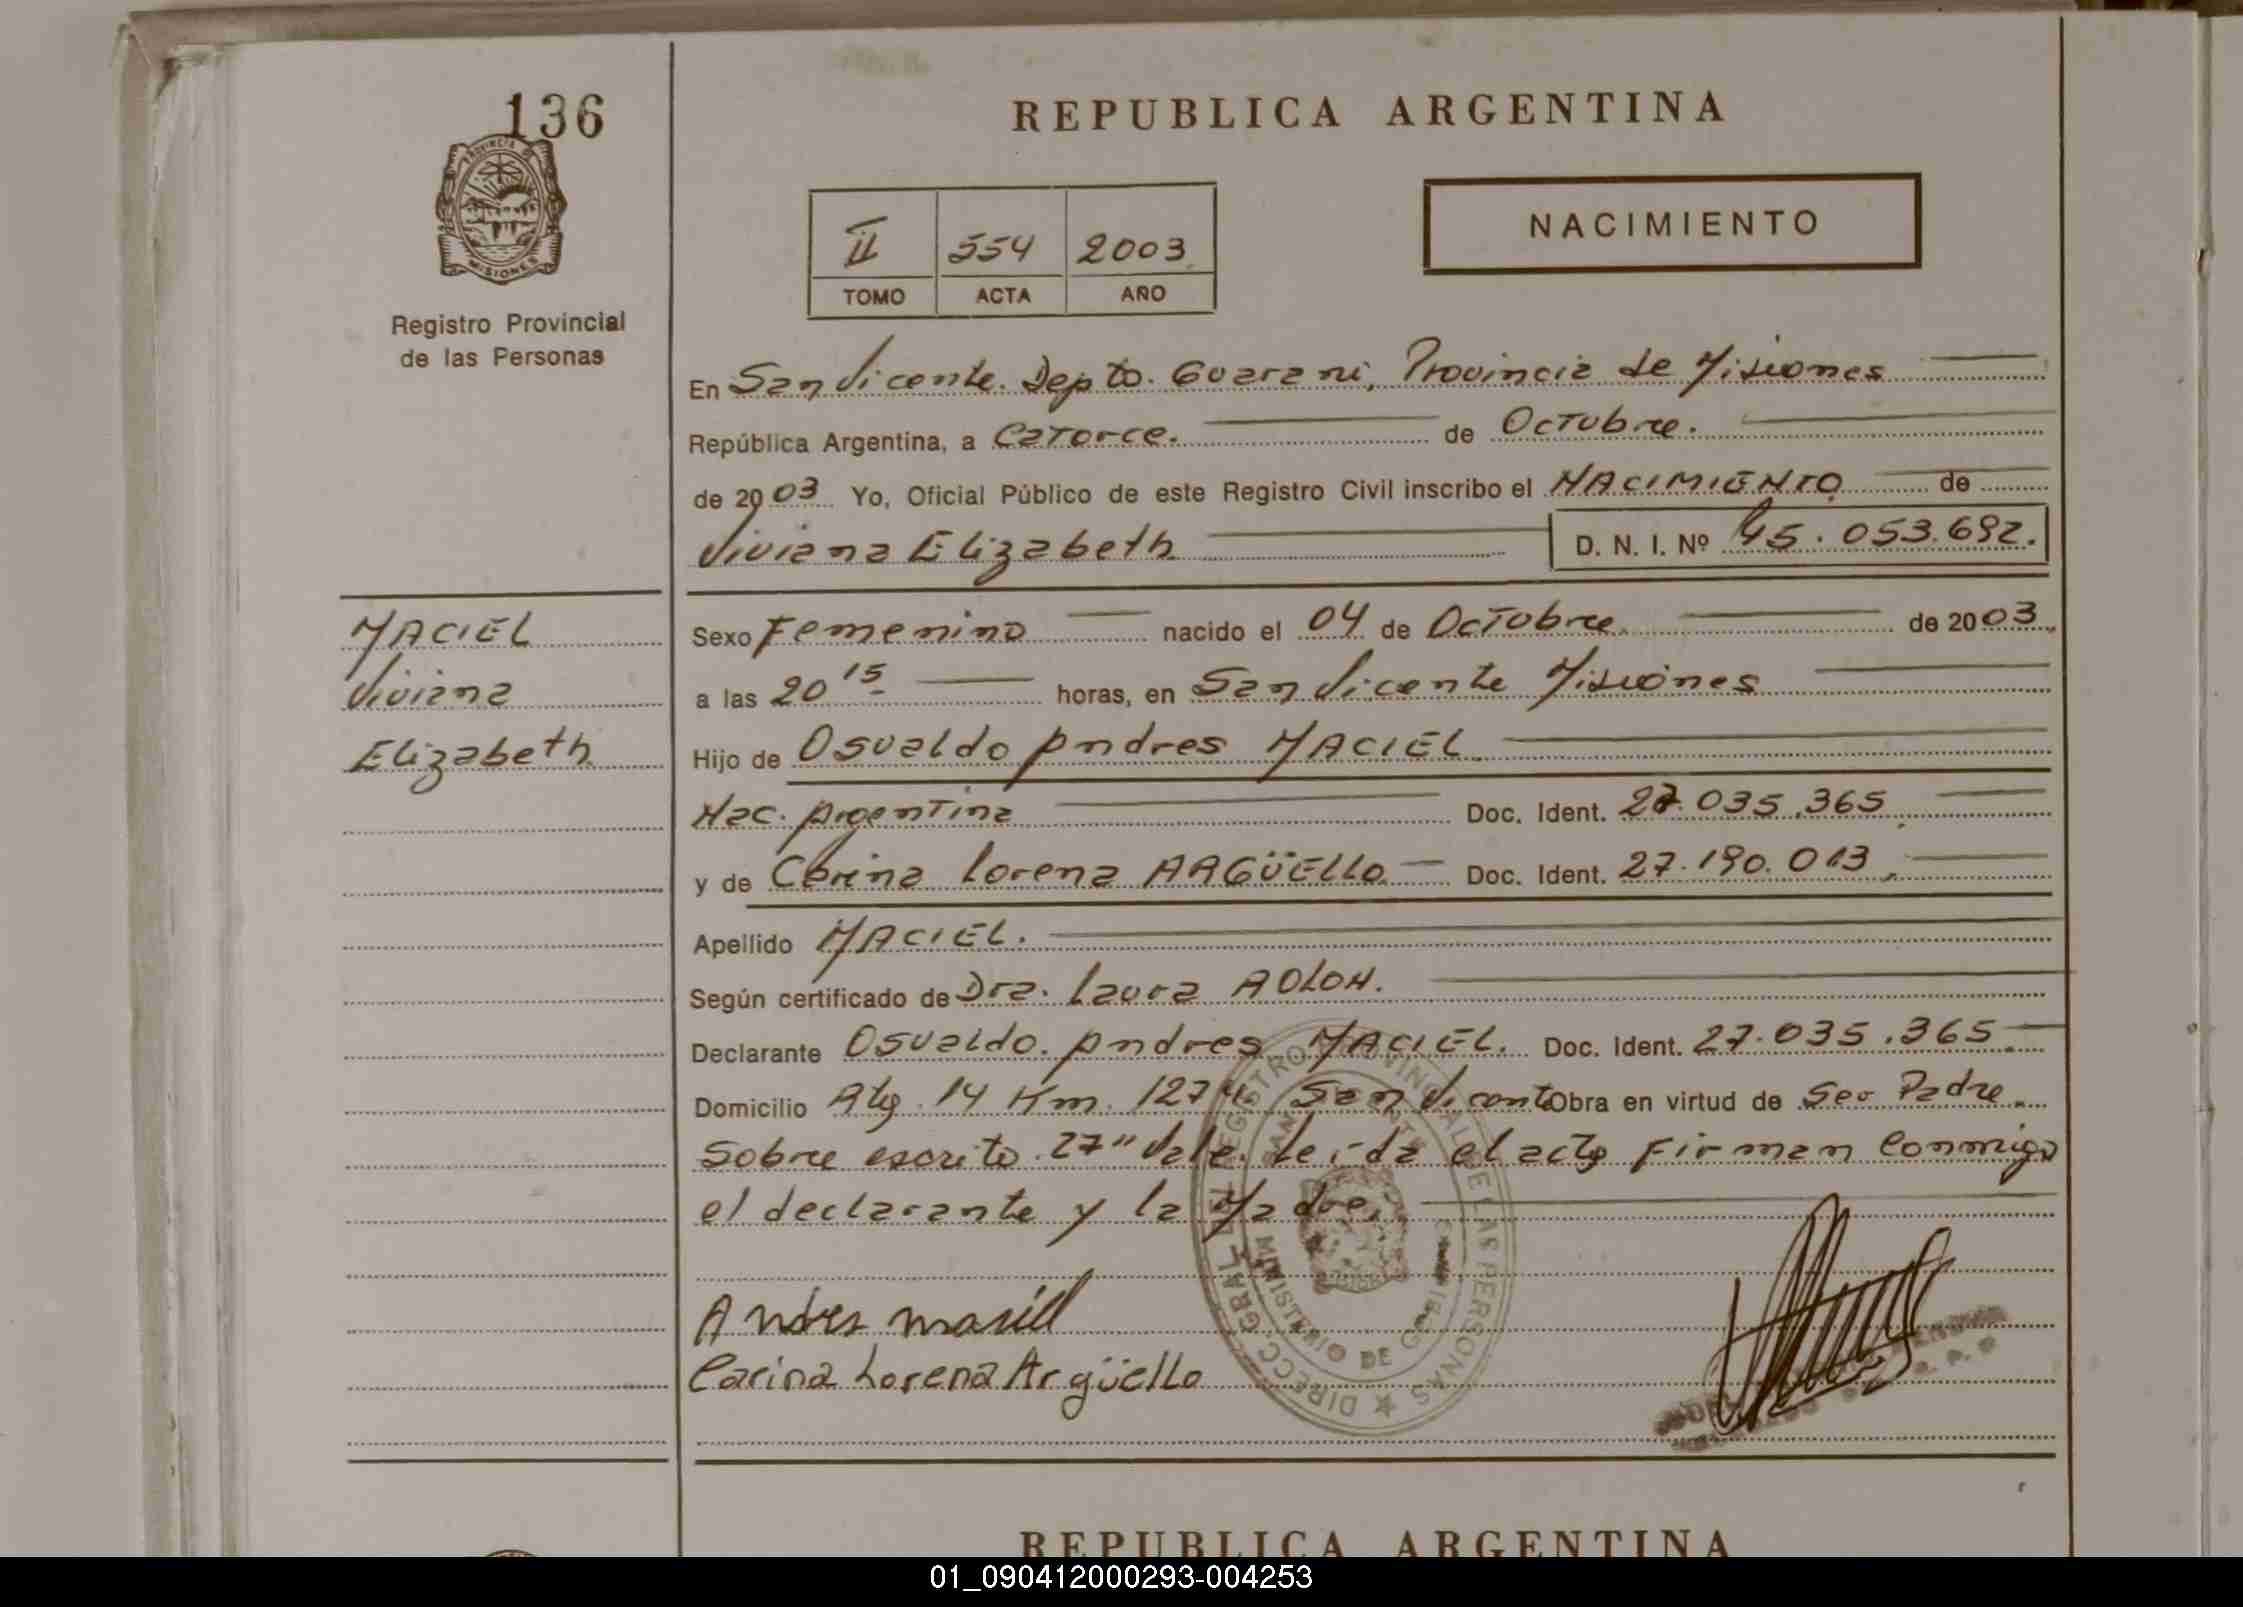 136
REPUBLICA ARGENTINA
PROVINCIA DE
MISIONES
Registro Provincial
de las Personas
II 554 2003
TOMO ACTA AÑO
NACIMIENTO
En San Vicente. Depto. Guarani, Provincia de Misiones
República Argentina, a Catorce. de Octubre.
de 2003 Yo, Oficial Público de este Registro Civil inscribo el NACIMIENTO de
Viviana Elizabeth D. N. I. Nº 45.053.692.
MACIEL
Viviana
Elizabeth
Sexo Femenino nacido el 04 de Octubre. de 2003.
a las 20 15 horas, en San Vicente Misiones
Hijo de Osvaldo Andres MACIEL.
Nac. Argentina Doc. Ident. 27.035.365.
y de Carina Lorena ARGÜELLO. Doc. Ident. 27.190.013.
Apellido MACIEL.
Según certificado de Dra. Laura
Declarante Osvaldo. Andres MACIEL. Doc. Ident. 27.035.365.
Domicilio 14 Km. San Vicente Obra en virtud de Ser Padre.
Sobre escrito 27" Vale. Leida el acta Firman Conmigo
el declarante y la Madre.
DIRECC. GRAL. DEL REGISTRO PROVINCIAL DE LAS PERSONAS
MINISTERIO DE GOBIERNO
Andres
Carina Lorena Argüello
REPUBLICA ARGENTINA
01_090412000293-004253